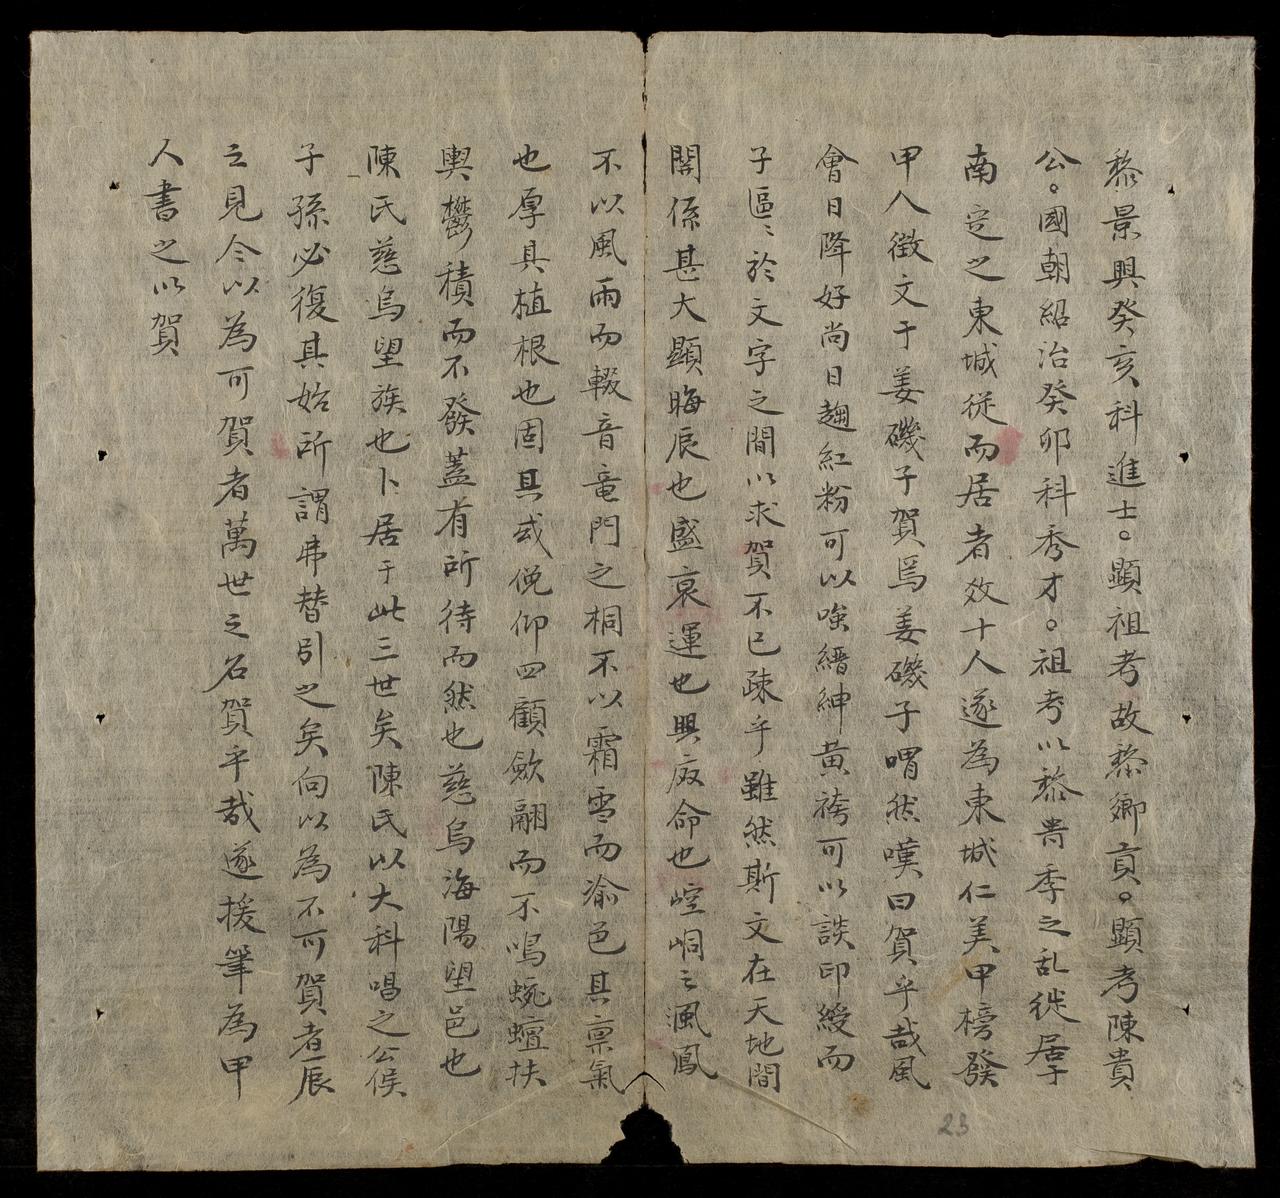 黎景興癸亥科進士。顯祖考故黎鄉貢。顯考陳貴
公。國朝紹治癸卯科秀才。祖考以黎啚季之乱徙居于
南定之東城從而居者效十人遂為東城仁美甲榜發
甲人徵文于姜磯子賀焉姜磯子喟然嘆曰賀乎哉風
會日降好尚日趨紅粉可以嗤縉紳黄袴可以談印綬而
子區〻於文字之間以求賀不已疎乎雖然斯文在天地間
関係甚大顯晦辰也盛衰運也興廢命也崆峒之風鳳
不以風雨而輟音竜門之桐不以霜雪而渝色其禀氣
也厚其植根也固其或俛仰四顧斂翮而不鳴蜿蟺扶
輿鬱積而不發蓋有所待而然也慈烏海陽望邑也
陳氏慈烏望族也卜居于此三世矣陳氏以大科唱之公侯
子孫必復其始所謂弗替引之矣向以為不可賀者辰
之見今以為可賀者萬世之名賀乎哉遂援筆為甲
人書之以賀
23